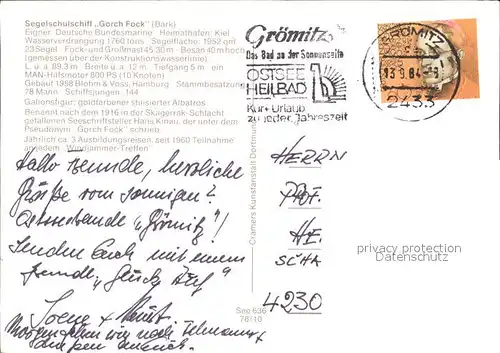 Segelschulschiff „Gorch Fock" (Bark)
Eigner: Deutsche Bundesmarine. Heimathafen: Kiel
Wasserverdrängung 1760 tons. Segelfläche: 1952 qm
23 Segel Fock- und Großmast 45,30 m - Besan 40 m hoch
(gemessen über der Konstruktionswasserlinie)
L. ü. a. 89,3 m Breite ü. a. 12 m, Tiefgang 5 m - ein
MAN-Hilfsmotor 800 PS (10 Knoten)
Gebaut 1958 Blohm & Voss, Hamburg Stammbesatzung
78 Mann Schiffsjungen: 144
Galionsfigur: goldfarbener stilisierter Albatros
Benannt nach dem 1916 in der Skagerrak-Schlacht
gefallenen Seeschriftsteller Hans Kinau, der unter dem
Pseudonym Gorch Fock" schrieb.
Jährlich ca. 3 Ausbildungsreisen, seit 1960 Teilnahme
an jedem „Windjammer-Treffen"
Grömitz
Das Bad an der Sonnenseite
OSTSEE
HEILBAD
Kur + Urlaub
zu jeder Jahreszeit
GRÖMITZ
13.9.84-8
2433
Hallo Freunde, herzliche
Grüße vom sonnigen
Ostseebade „Grömitz"!
Senden Euch mit einem
freundl. „Glück Auf"
+
Morgen fahren wir nach Fehmarn
HERRN
PROF.
HE
SCHA
4230
Cramers Kunstanstalt Dortmund
See 636
78110
privacy protection
Datenschutz